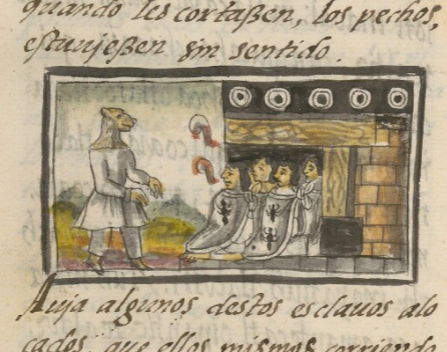 quando les cortaßen, los pechos,
estuujeßen sin sentido.
Auja algunos destos esclauos alo
cados, que ellos mismos corriendo